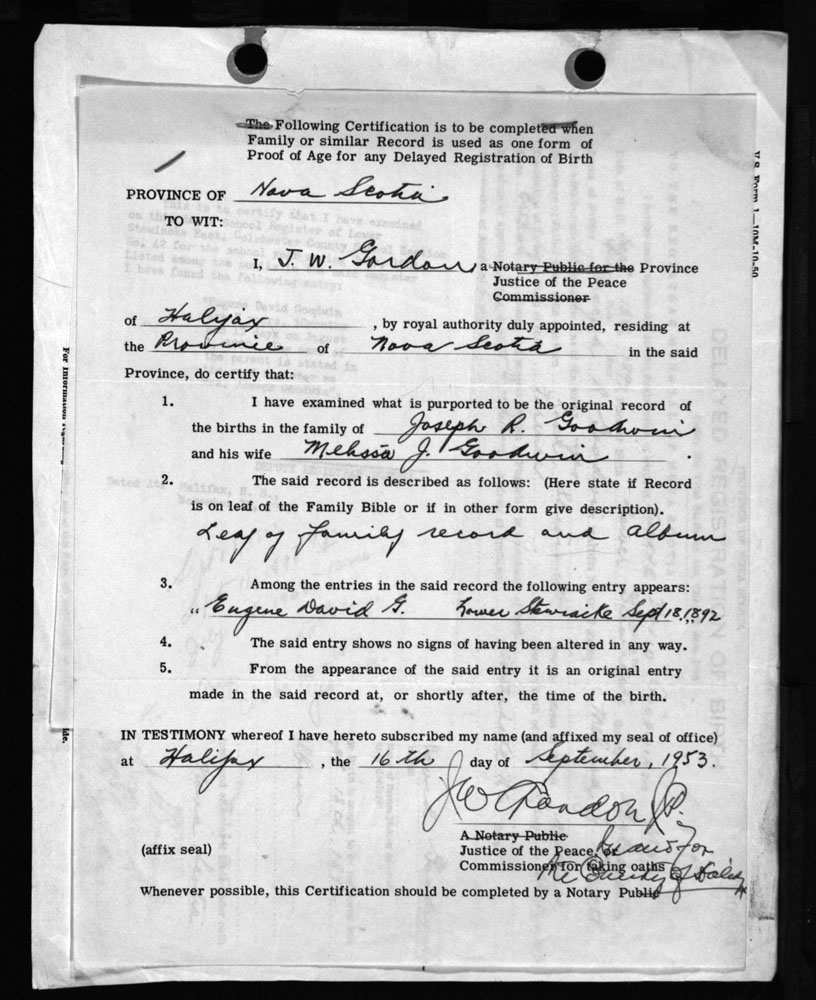 The Following Certification is to be completed when
Family or similar Record is used as one form of
Proof of Age for any Delayed Registration of Birth
V.S. Form 1—10M-10-50
PROVINCE OF Nova Scotia
TO WIT:
This is to certify that I have examined
I, J. W. Gordon, a Notary Public for the Province
Justice of the Peace
Commissioner
of Halifax, by royal authority duly appointed, residing at
the Province of Nova Scotia in the said
Province, do certify that:
1. I have examined what is purported to be the original record of
the births in the family of Joseph R. Goodwin
and his wife Melissa J. Goodwin.
2. The said record is described as follows: (Here state if Record
is on leaf of the Family Bible or if in other form give description).
Leaf of family record and album
3. Among the entries in the said record the following entry appears:
"Eugene David G. Lower Stewiacke Sept 18, 1892
4. The said entry shows no signs of having been altered in any way.
5. From the appearance of the said entry it is an original entry
made in the said record at, or shortly after, the time of the birth.
IN TESTIMONY whereof I have hereto subscribed my name (and affixed my seal of office)
at Halifax, the 16th day of September, 1953.
J W Gordon J.P.
A Notary Public
(affix seal)
Justice of the Peace, or in and for
Commissioner for taking oaths the County of Halifax
Whenever possible, this Certification should be completed by a Notary Public
DELAYED REGISTRATION OF BIRTH
For Information